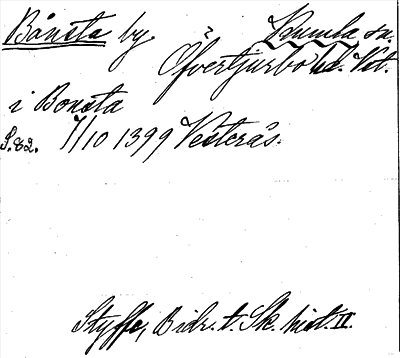 Bånsta by. Kumla sn.
Öfvertjurbo hd. Vst.
i Bonsta
S. 82. 7/10 1399 Vesterås.
Styffe, Bidr. t. Sk. hist. II.